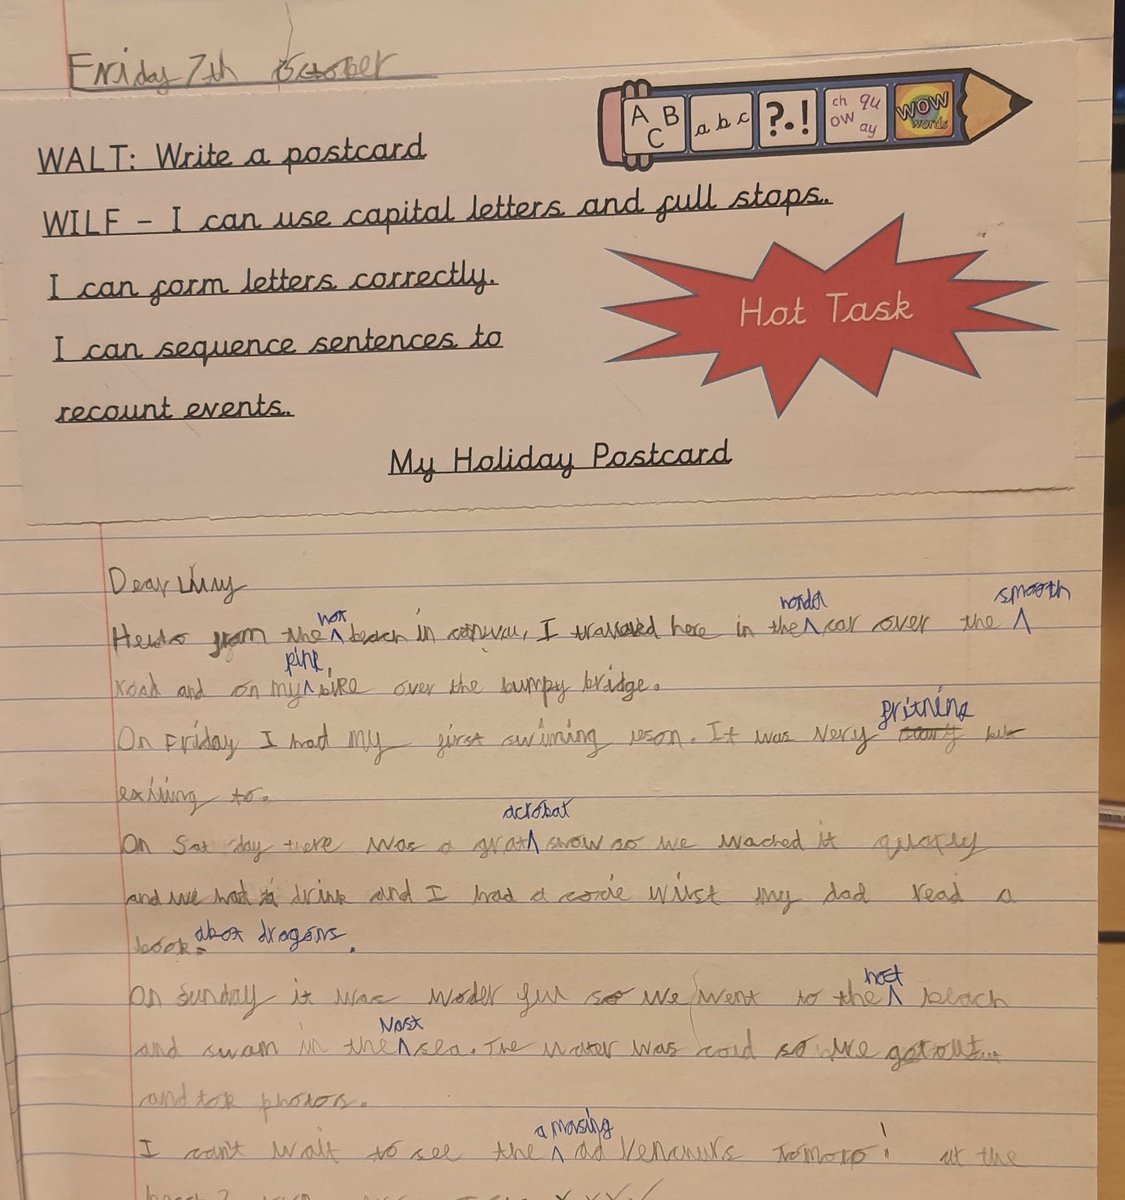 Friday 7th October
A B C a b c ?.! ch qu ow ay WOW words
WALT: Write a postcard
WILF - I can use capital letters and full stops.
I can form letters correctly.
I can sequence sentences to
recount events.
Hot Task
My Holiday Postcard
Dear
smooth
from the beach in I here in the car over the
pink,
road and on my bike over the bumpy bridge.
On Friday I had my first swiming leson. It was very
exiting to.
acrobat
On Sat day there was a grat show so we wached it
and we had a drink and I had a wilst my dad read a
book. abot dragons.
On Sunday it was woder ful so we went to the beach
and swam in the sea. The water was cold so we got out
and tok photos.
amasing
I can't wait to see the tomoro! at the